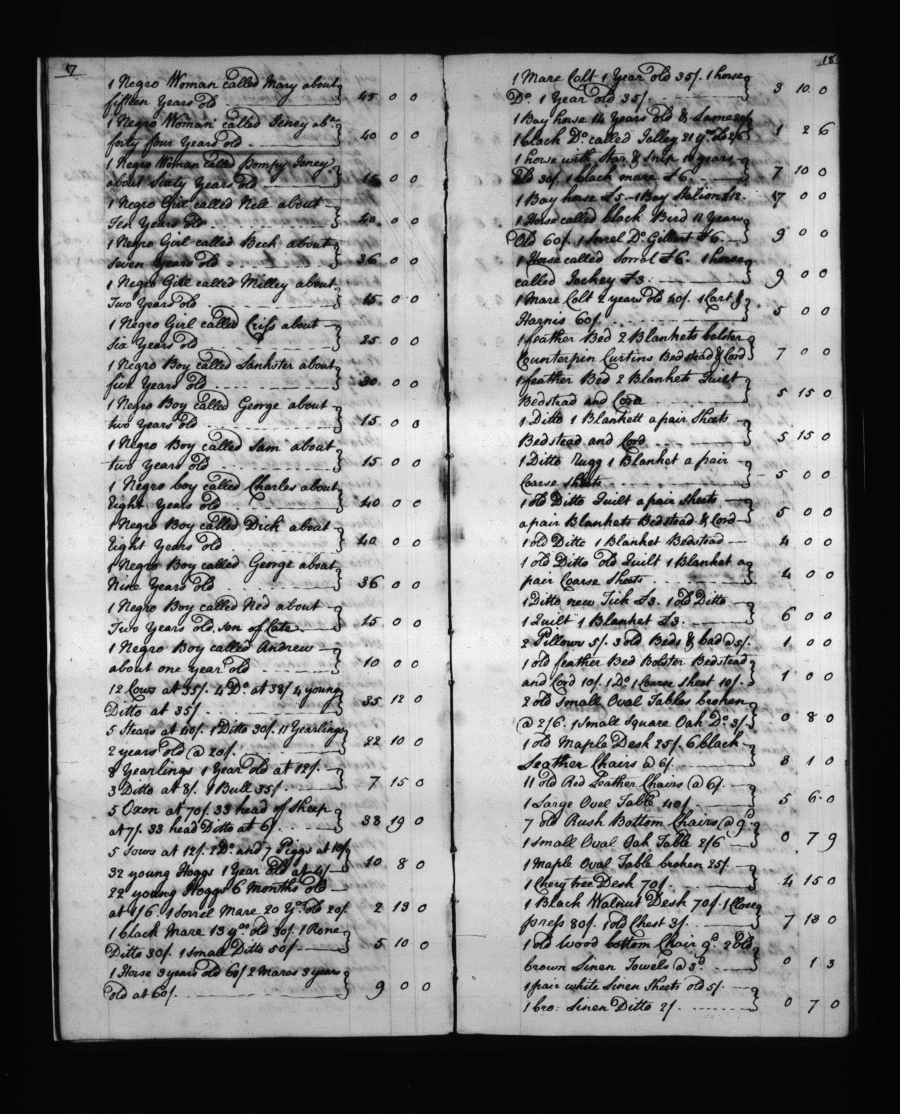 17
1 Negro Woman Called Mary about
fifteen Years old 45 0 0
1 Negro Woman called Jeney abt
forty four Years old 40 0 0
1 Negro Woman Called Bompy Jeney
about Sixty Years old 0 0
1 Negro Girl called Nell about
Ten Years old 40 0 0
1 Negro Girl called Beck about
seven Years old 36 0 0
1 Negro Girl called Milley about
Two Years old 15 0 0
1 Negro Girl called Criss about
Six Years old 25 0 0
1 Negro Boy called Sankster about
five Years old 30 0 0
1 Negro Boy Called George about
two Years old 15 0 0
1 Negro Boy called Sam about
two Years old 15 0 0
1 Negro boy called Charles about
Eight Years old 40 0 0
1 Negro Boy Called Dick about
Eight Years old 40 0 0
1 Negro Boy called George about
Nine Years old 36 0 0
1 Negro Boy called Ned about
Two Years old, son of Cate 15 0 0
1 Negro Boy called Andrew
about one Year old 10 0 0
12 Cows at 35/. 4 Do at 38/ 4 young
Ditto at 35/ 35 12 0
5 Stears at 40/. 1 Ditto 30/. 11 Yearlings
2 years old @ 20/. 22 10 0
8 Yearlings 1 Year old at 12/.
3 Ditto at 8/. 1 Bull 35/. 7 15 0
5 Oxon at 70/. 33 head of Sheep
at 7/. 33 head Ditto at 6/. 38 19 0
5 Sows at 12/. 2 Do. and 7 Piggs at 10/
32 young Hoggs 1 Year Old at 4/ 10 8 0
22 young Hoggs 6 Months old
at 1/6. 1 Sorrel Mare 20 Yrs Old 20/. 2 13 0
1 black Mare 13 yrs old 30/. 1 Rone
Ditto 30/. 1 Small Ditto 50/. 5 10 0
1 Horse 3 years old 60/ 2 Mares 3 years
old at 60/. 9 0 0
18
1 Mare Colt 1 Year old 35/. 1 horse
Do. 1 Year old 35/. 3 10 0
1 Bay horse 14 Years old & Lame 20/
1 black Do. called Jolley 21 yrs old 2/6 1 2 6
1 horse with Star & Snip 10 years
Old 30/. 1 black mare £6. 7 10 0
1 Bay horse £5 - 1 Bay Stalion £12. 17 0 0
1 Horse called black Bird 11 Years
Old 60/. 1 Sorrel Do. Gilbert £6. 9 0 0
1 Horse called Sorrel £6. 1 horse
called Jockey £3. 9 0 0
1 Mare Colt 2 years old 40/. 1 Cart &
Harnis 60/. 5 0 0
1 feather Bed 2 Blankets bolster
Counterpin Curtins Bedstead & Cord 7 0 0
1 feather Bed 2 Blankets Quilt
Bedstead and Cord 5 15 0
1 Ditto 1 Blankett a pair Sheets
Bedstead and Cord 5 15 0
1 Ditto Rugg 1 Blanket a pair
Coarse Sheets 5 0 0
1 old Ditto Quilt a pair Sheets
a pair Blankets Bedstead & Cord 5 0 0
1 old Ditto 1 Blanket Bedstead 4 0 0
1 old Ditto Old Quilt 1 Blanket a
pair Coarse Sheets 4 0 0
1 Ditto new Tick £3. 1 old Ditto
1 Quilt 1 Blanket £3. 6 0 0
2 Pillows 5/. 3 old Beds & bad @ 5/. 1 0 0
1 old feather Bed Bolster Bedstead
and Cord 10/. 1 Do. 1 Coarse Sheet 10/. 1 0 0
2 old Small Oval Tables broken
@ 2/6. 1 Small Square Oak Do. 3/. 0 8 0
1 old Maple Desk 25/. 6 black
Leather Chairs @ 6/. 3 1 0
11 old Red Leather Chairs @ 6/.
1 Large Ovel Table 40/. 5 6 0
7 old Rush Bottom Chairs @ 9d
1 Small Oval Oak Table 2/6 0 7 9
1 Maple Oval Table broken 25/.
1 Chery tree Desk 70/. 4 15 0
1 Black Walnut Desk 70/. 1 Close
press 80/. 1 old Chest 3/. 7 13 0
1 old wood bottom Chair 9d. 2 Old
brown Linen Towels @ 3d. 0 1 3
1 pair white Linen Sheets old 5/.
1 bro: Linen Ditto 2/. 0 7 0